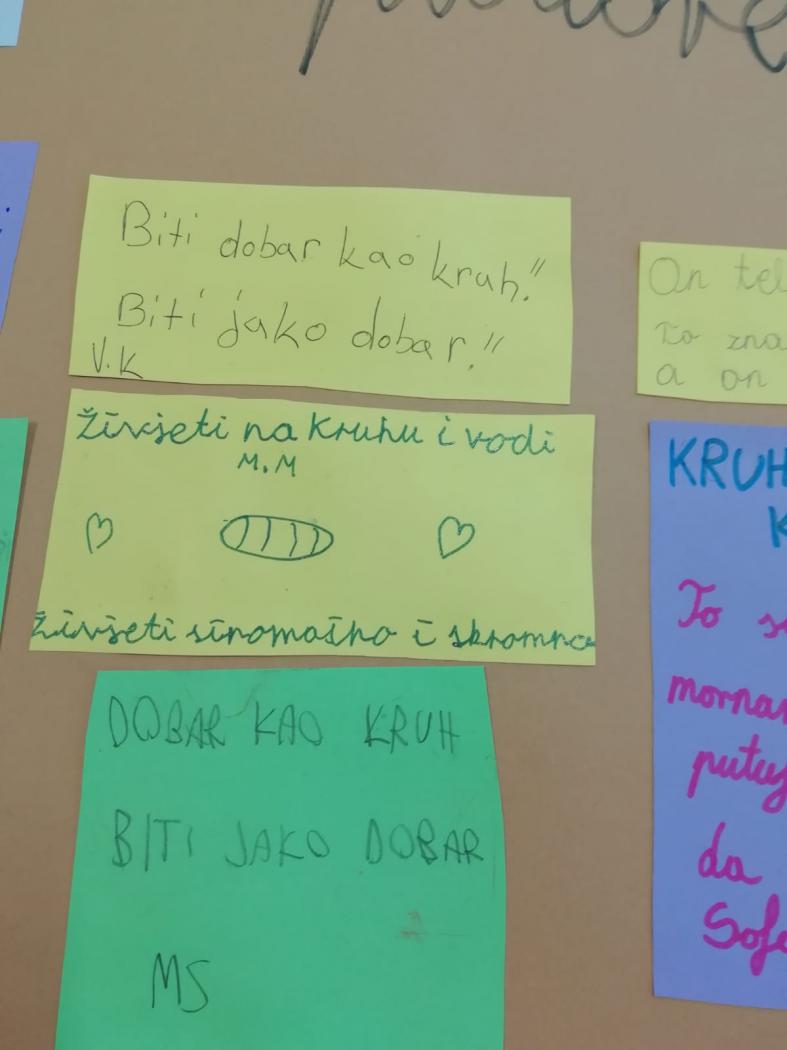 Biti dobar kao kruh!"
Biti jako dobar!"
V.K
živjeti na kruhu i vodi
M.M
živjeti siromašno i skromno
DOBAR KAO KRUH
BITI JAKO DOBAR
MS
On
To
a on
KRUH
To
da